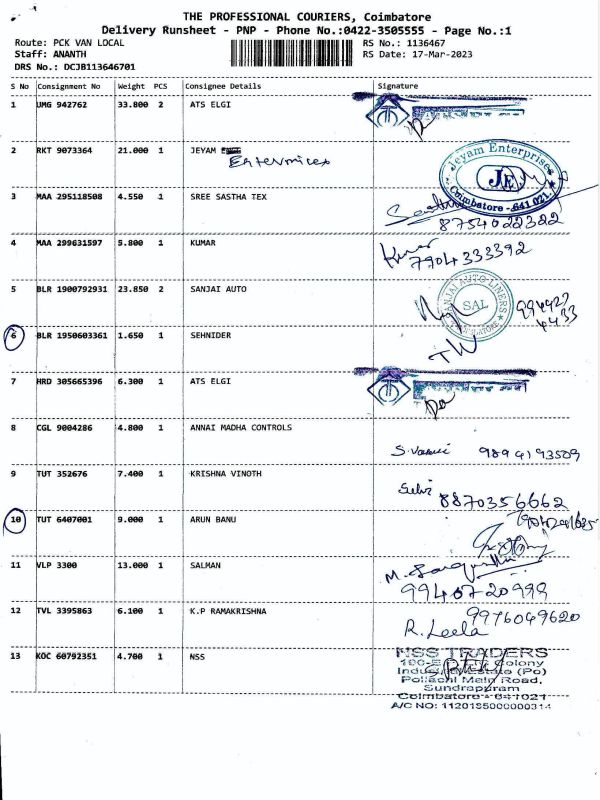 THE PROFESSIONAL COURIERS, Coimbatore
Delivery Runsheet - PNP - Phone No.:0422-3505555 - Page No.:1
Route: PCK VAN LOCAL RS No.: 1136467
Staff: ANANTH RS Date: 17-Mar-2023
DRS No.: DCJB113646701
S No Consignment No Weight PCS Consignee Details Signature
1 UMG 942762 33.800 2 ATS ELGI
2 RKT 9073364 21.000 1 JEYAM
Jeyam Enterprises
JE
Coimbatore - 641 021.
3 MAA 295118508 4.550 1 SREE SASTHA TEX
8754022322
4 MAA 299631597 5.800 1 KUMAR
Kumar 7904333392
5 BLR 1900792931 23.850 2 SANJAI AUTO
SANJAI AUTO LINERS
SAL
COIMBATORE
994427
4433
6 BLR 1950603361 1.650 1 SEHNIDER
7 HRD 305665396 6.300 1 ATS ELGI
8 CGL 9004286 4.800 1 ANNAI MADHA CONTROLS
9894193509
9 TUT 352676 7.400 1 KRISHNA VINOTH
Selvi 8870356662
10 TUT 6407001 9.000 1 ARUN BANU
11 VLP 3300 13.000 1 SALMAN
9940720999
12 TVL 3395863 6.100 1 K.P RAMAKRISHNA
9976049620
R. Leela
13 KOC 60792351 4.700 1 NSS
NSS TRADERS
Colony
Industrial Estate (Po)
Pollachi Main Road,
Sundrapuram
Coimbatore - 641021
A/C NO: 1120135000000314